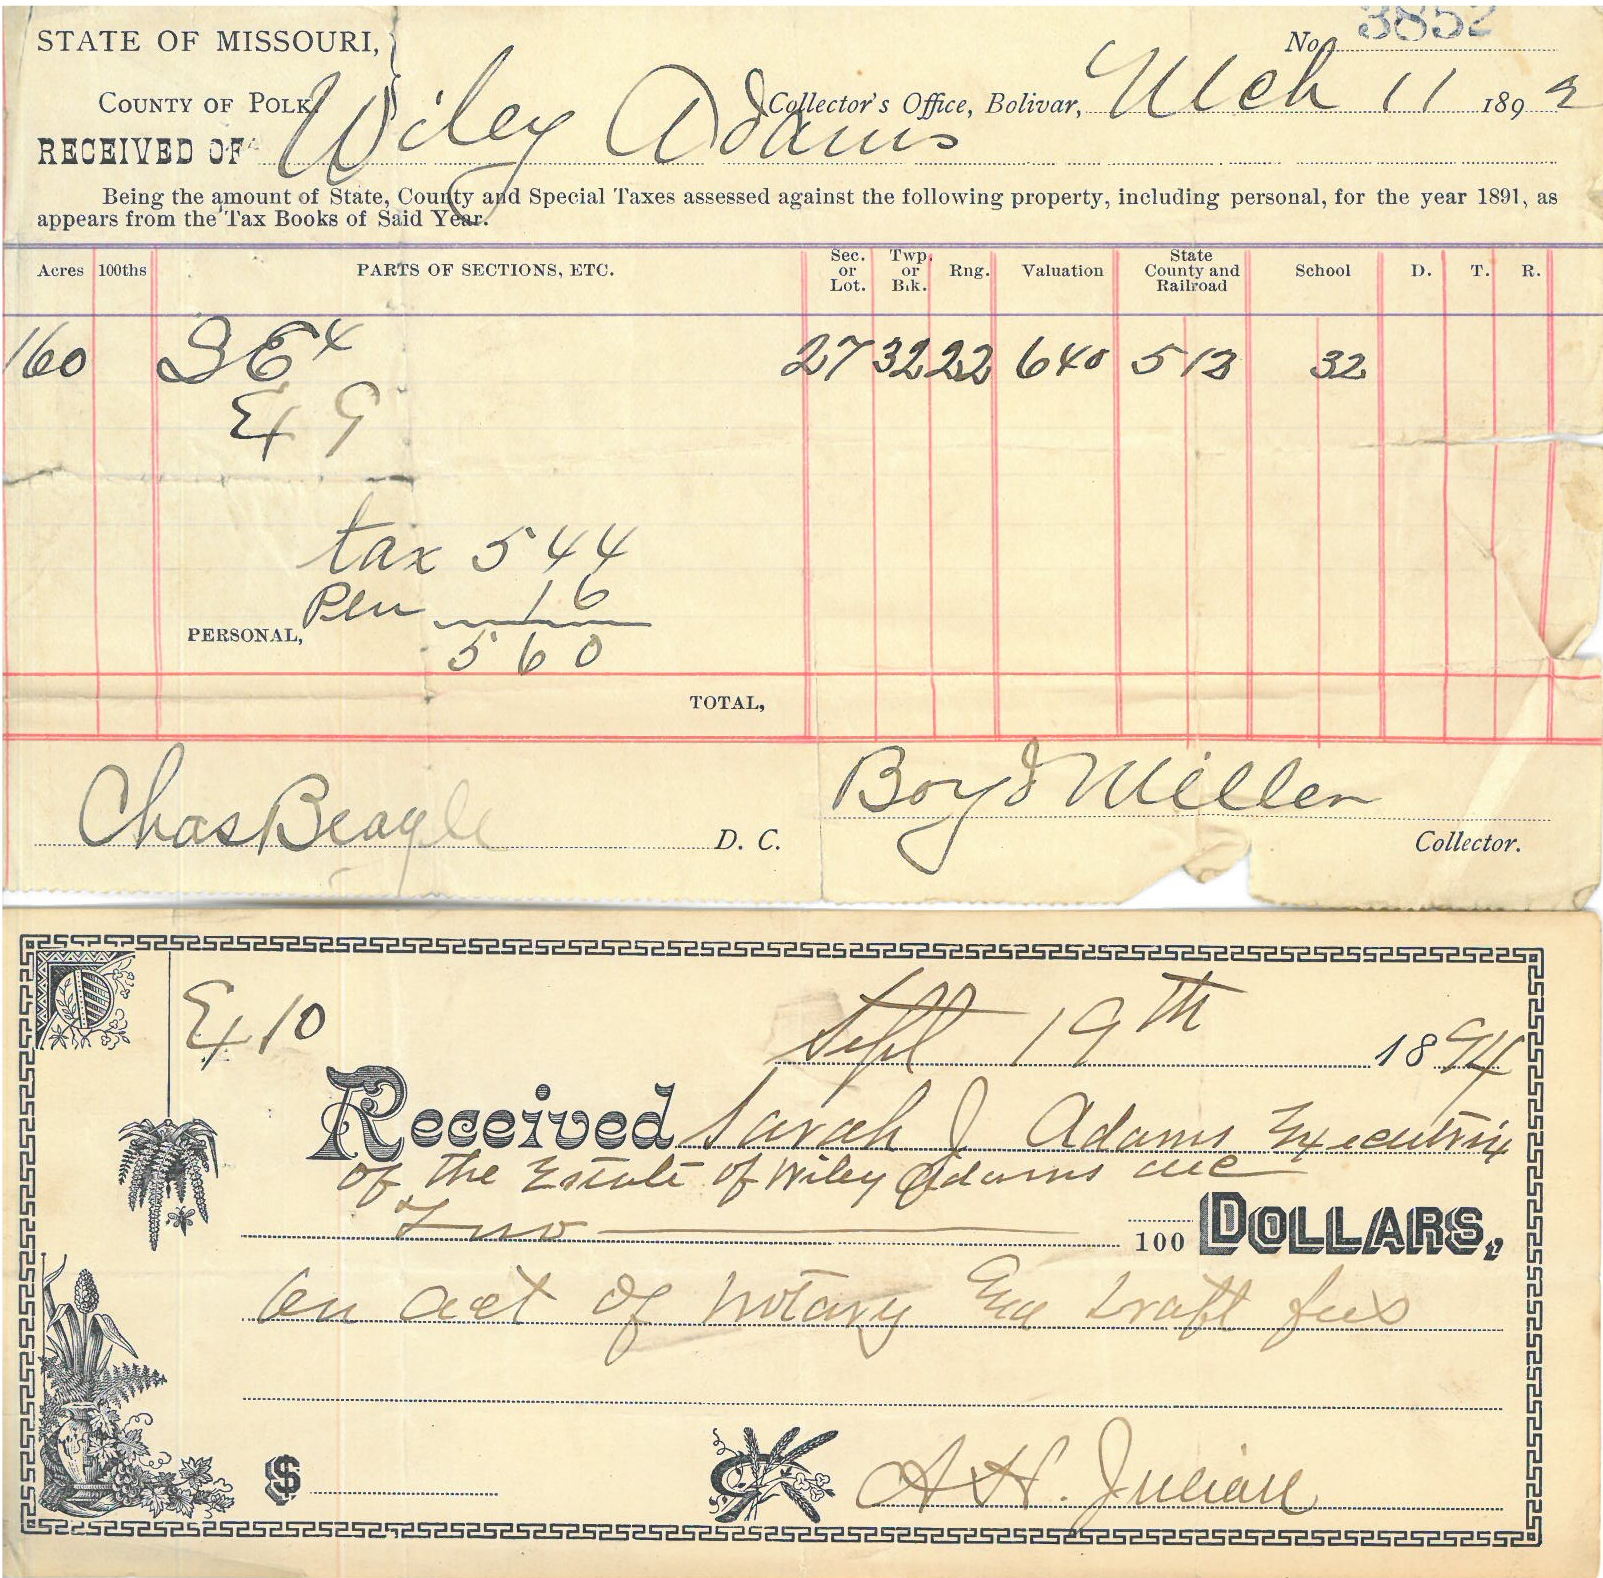 STATE OF MISSOURI,
No. 3852
COUNTY OF POLK Collector's Office, Bolivar, Mch 11 1892
RECEIVED OF Wiley Adams
Being the amount of State, County and Special Taxes assessed against the following property, including personal, for the year 1891, as
appears from the Tax Books of Said Year.
Acres 100ths PARTS OF SECTIONS, ETC. Sec. or Lot. Twp. or Blk. Rng. Valuation State County and Railroad School D. T. R.
160 SE 4 27 32 22 640 5 12 32
Ex 9
tax 5 44
Pen 16
PERSONAL,
5 60
TOTAL,
Chas Beagle D. C. Boyd Miller
Collector.
Ex 10
Sept 19th 1894
Received Sarah J Adams Executrix
of the Estate of Wiley Adams dec
Two 100 DOLLARS,
on act of notary and Draft fees
$
A H. Julian